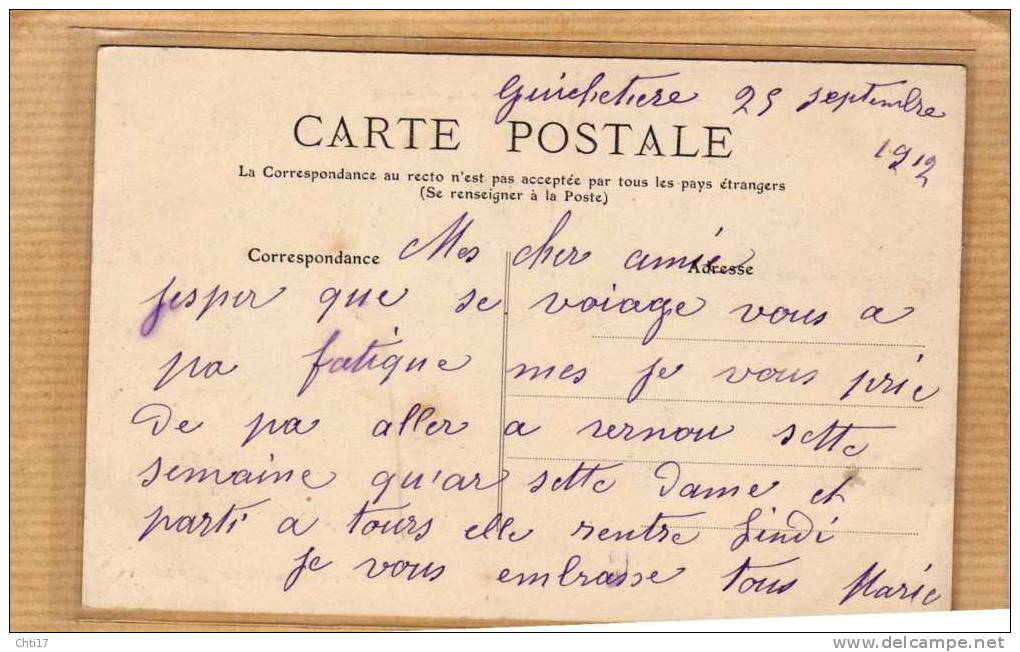 Guichetiere 25 septembre
1912
CARTE POSTALE
La Correspondance au recto n'est pas acceptée par tous les pays étrangers
(Se renseigner à la Poste)
Correspondance
Adresse
Mes cher amie
jesper que se voiage vous a
pa fatique mes je vous prie
De pa aller a vernou sette
semaine qu'ar sette Dame et
parti a tours elle rentre lindi
je vous embrasse tous Marie
Chti17
www.delcampe.net